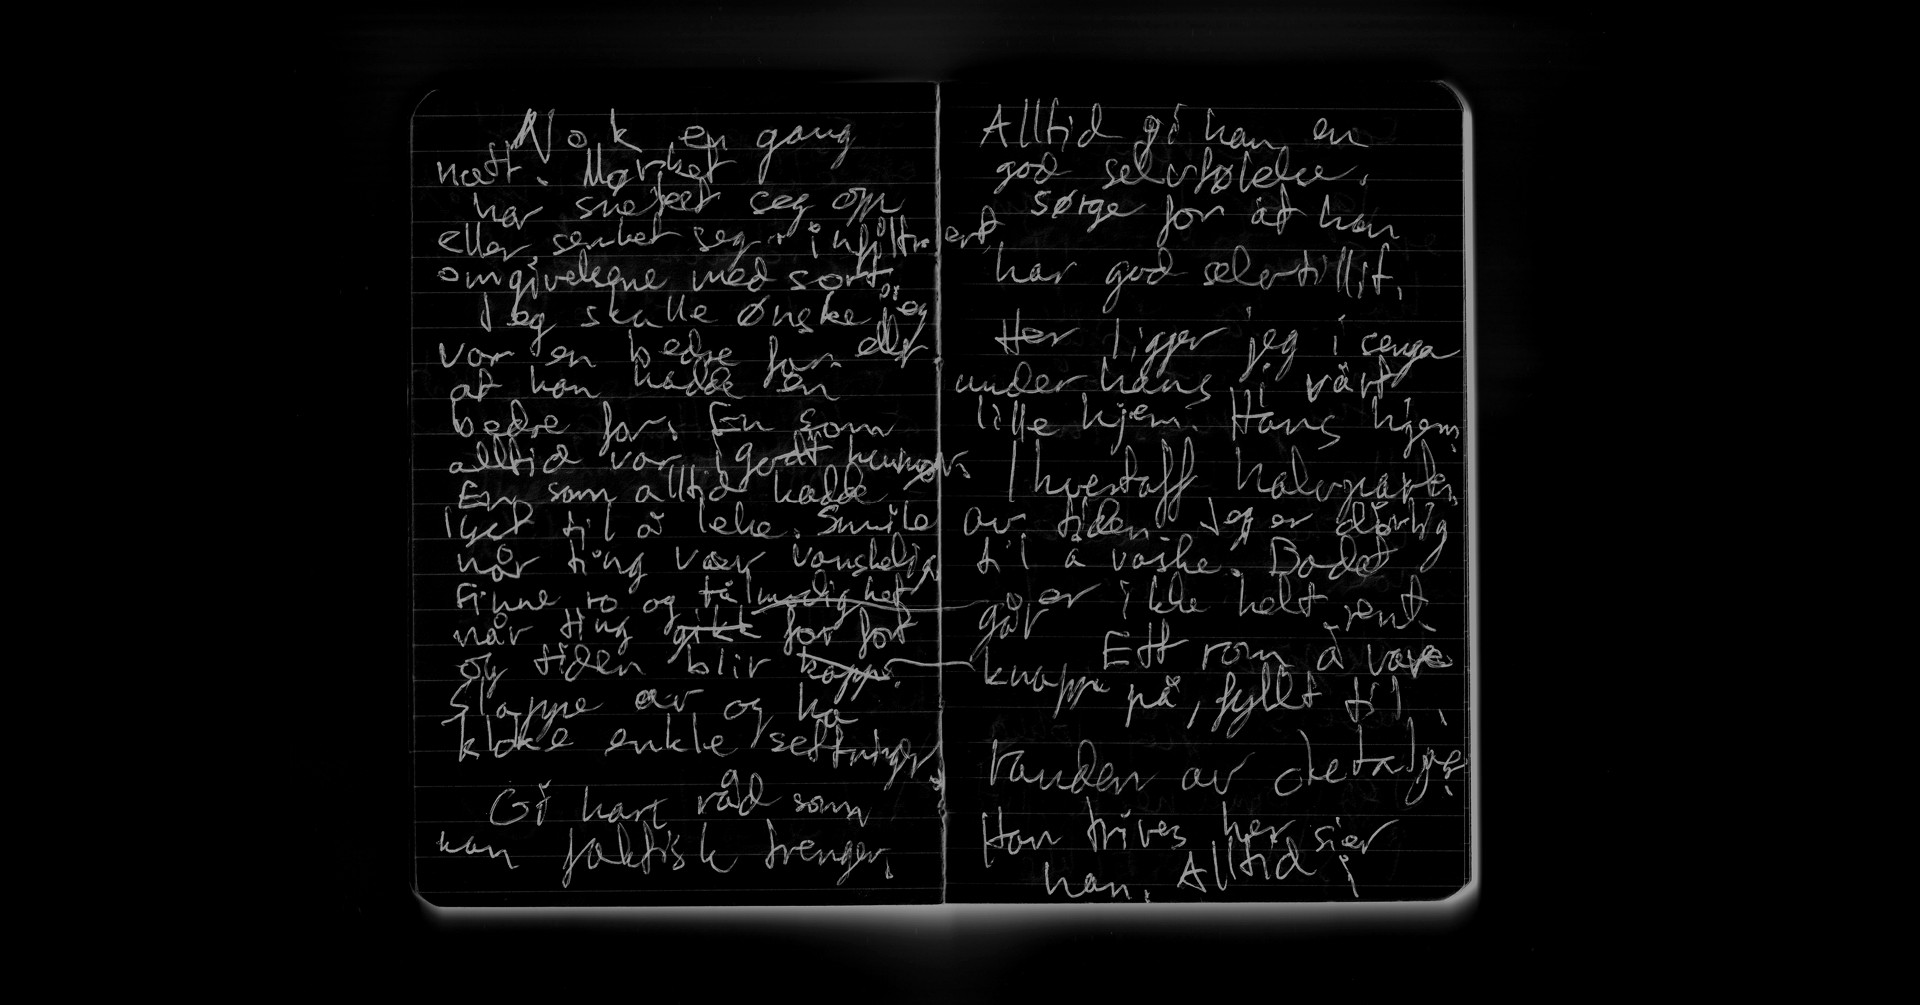 Nok en gang
natt. Mørket
har sneket seg opp
eller senket seg. infiltrert
omgivelsene med sort.
Jeg skulle ønske jeg
var en bedre far. eller
at han hadde en
bedre far. En som
alltid var i godt humør.
En som alltid hadde
lyst til å leke. Smile
når ting var vanskelig
Finne ro og tålmodighet
når ting gikk for fort
og tiden blir knapp.
Slappe av og ha
kloke enkle setninger.
Gi ham råd som
han faktisk trenger.
Alltid gi han en
god selvfølelse.
Sørge for at han
har god selvtillit.
Her ligger jeg i senga
under hans i vårt
lille hjem. Hans hjem
I hvertfall halvparten
av tiden. Jeg er dårlig
til å vaske. Badet
er ikke helt rent
går
Ett rom å være
knapp på, fyllt til
randen av detaljer.
Han trives her sier
han. Alltid i